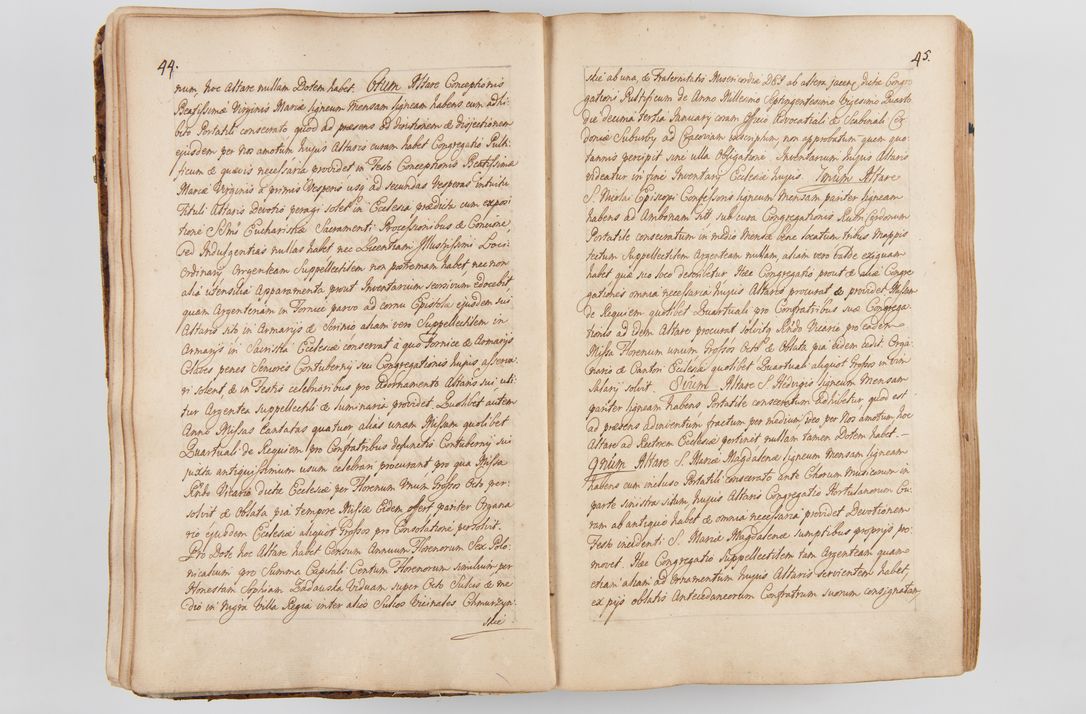 44.
num hoc Altare nullam Dotem habet. 6tum Altare Conceptionis
Beatissimæ Virginis Mariæ ligneum Mensam ligneam habens cum adhi-
bito Portatili consecrato quod ad præsens ad divisionem & disjectionem
ejusdem per nos amotum hujus Altaris curam habet Congregatio Pelli-
ficum & quævis necessaria providet in Festo Conceptionis Beatissimæ
Mariæ Virginis a primis Vesperis usq ad secundas Vesperas intuitu
Tituli Altaris Devotio peragi solet in Ecclesia prædicta cum exposi-
tione Ssmi Eucharistiæ Sacramenti Processionibus & Concione,
sed Indulgentias nullas habet nec Licentiam Illustrissimi Loci
Ordinarij Argenteam Suppellectilem non postremam habet nec non
alia utensilia Apparamenta prout Inventarium sernivum edocebit
quam Argenteriam in Fornice parvo ad cornu Epistolæ ejusdem sui
Altaris sito in Armarijs & Scrinio aliam vero Suppellectilem in
Armarijs in Sacristia Ecclesiæ conservat à quo Fornice & Armarijs
Claves penes Seniores Contubernij seu Congregationis hujus asserva-
ri solent, & in Festis celebrioribus pro adornamento Altaris sui uti-
tur Argentea suppellectili & luminaria providet, Quolibet autem
Anno Missas Cantatas quatuor alias unam Missam quolibet
Quartuali de Requiem pro Confratribus defunctis Contubernij sui
juxta antiquissimum usum celebrari procurant pro qua Missa
Rndo Vicario dictæ Ecclesiæ per Florenum Unum grossos Octo per-
solvit & Oblata pia tempore Missæ Eidem offert pariter Organa
rio ejusdem Ecclesiæ aliquot Grossos pro Consolatione persolvit.
Pro Dote hoc Altare habet Censum Annuum Florenorum Sex Polo-
nicalium pro Summa Capitali Centum Florenorum similium per
Honestam Sophiam Zadauska Viduam super Octo Sulcis & me
dio in Nigra Villa Regia inter alios Sulcos Vicinales Chmurzyn-
skie
45.
skie ab una, & Fraternitatis Misericordiæ DEI ab altera jacen, dictæ Congre
gationi Pellificum de Anno Millesimo Septingentesimo Vigesimo Quarto
die decima tertia January coram Officio Advocatiali & Scabinali Cer
doniæ Suburbij ad Cracoviam inscriptum, non approbatum quem quo-
tannis percipit sine ulla Obligatione. Inventarium hujus Altaris
videatur in fine Inventarij Ecclesiæ hujus. 7mum Altare
S. Nicolai Episcopi Confessoris ligneum Mensam pariter ligneam
habens ad Ambonam situm sub cura Congregationis Cerdonum
Portatile consecratum in medio Mensæ bene locatum tribus Mappis
tectum Suppellectilem Argenteam nullam, aliam vero valde exiguam
habet quæ suo loco describetur. Hæc Congregatio prout & aliæ Congre
gationes omnia necessaria hujus Altaris procurat & providet Missam
de Requiem quolibet Quartuali pro Confratribus suæ Congrega-
tionis ad idem Altare procurat solvitq Rndo Vicario pro eadem
Missa Florenum unum Grossos Octo & Oblata pia eidem cedit, Orga-
nario & Cantori Ecclesiæ quolibet Quartuali aliquot Grossos in vim
Salarij solvit. 8vum Altare S. Hedvigis ligneum Mensam
pariter ligneam habens Portatile consecratum Adhibetur quod est
ad præsens adinventum fractum per medium ideo per Nos amotum hoc
Altare ad Rectorem Ecclesiæ pertinet nullam tamen Dotem habet.—
9num Altare S. Mariæ Magdalenæ ligneum Mensam ligneam
habens cum incluso Portatili consecrato ante Chorum Musicorum in
parte sinistra situm, hujus Altaris Congregatio Hortulanorum Cu-
ram ab antiquo habet & omnia necessaria providet Devotionem
Festo incidenti S. Mariæ Magdalenæ sumptibus proprijs pro
movet. Hæc Congregatio Suppellectilem tam Argenteam quam
etiam aliam ad Ornamentum hujus Altaris servientem habet,
ex pijs oblatis Antecedaneorum Confratrum suorum consignatam